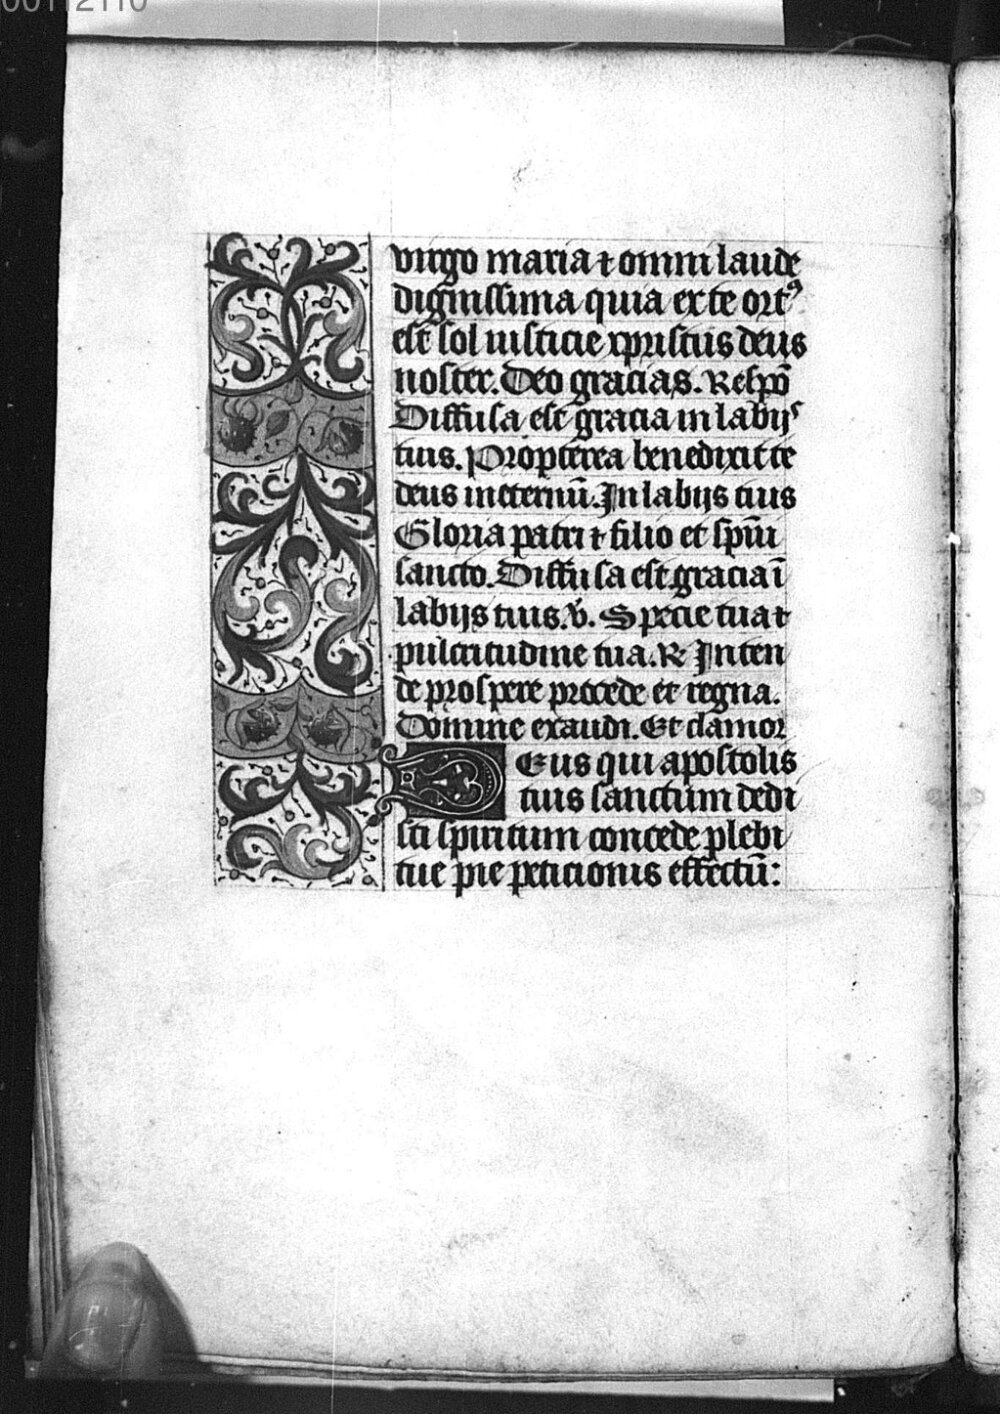 00112110
virgo maria ⁊ omni laude
dignissima quia ex te ortꝰ
est sol iusticie xpristus deus
noster. Deo gracias. Respō
Diffusa est gracia in labijs
tuis. Propterea benedixit te
deus in eternū. In labijs tuis
Gloria patri ⁊ filio et spūi
sancto. Diffusa est gracia ī
labijs tuis. v̄. Specie tua ⁊
pulcritudine tua. R̄ Inten
de prospere procede et regna.
Domine exaudi. Et clamor
Deus qui apostolis
tuis sanctum dedi
sti spiritum concede plebi
tue pie peticionis effectū: